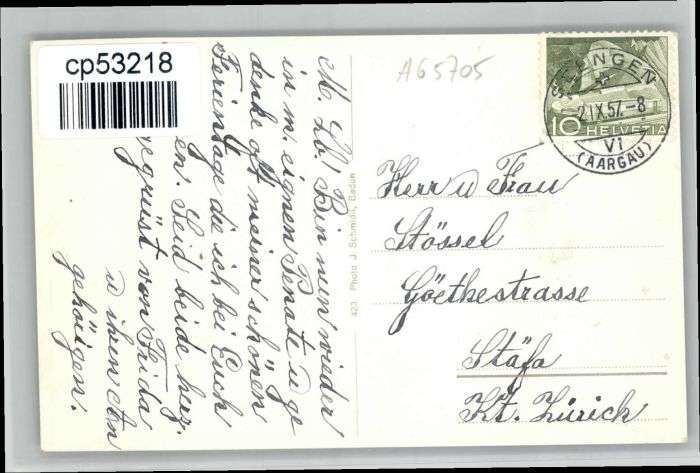 cp53218
A65705
M. Lb. Bin nun wieder
in m. eignen Penate u ge
denke oft meiner schönen
Ferientage die ich bei Euch
en. Seid beide herz.
gegrüst von Frida
u ihren An
gehörigen.
423 Photo J. Schmidli, Baden
2. IX. 57. - 8
VI
(AARGAU)
10 HELVETIA
Herr u Frau
Stössel
Göethestrasse
Stäfa
Kt. Zürich